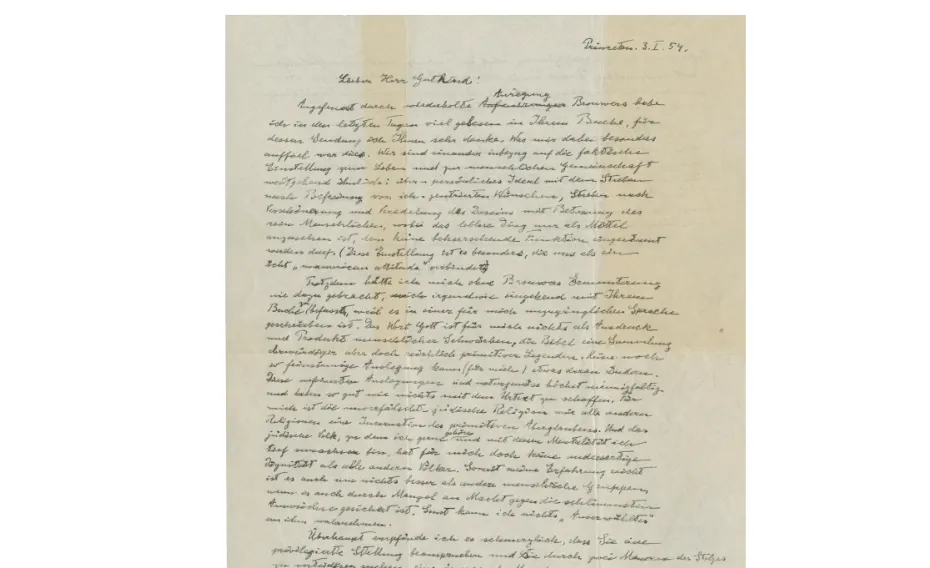 Princeton. 3. I. 54.
Lieber Herr Gutkind!
Angefeuert durch wiederholte Anregung Brouwers habe
ich in den letzten Tagen viel gelesen in Ihrem Buche, für
dessen Sendung ich Ihnen sehr danke. Was mir dabei besonders
auffiel war dies. Wir sind einander inbezug auf die faktische
Einstellung zum Leben und zur menschlichen Gemeinschaft
weitgehend ähnlich: persönliches Ideal mit dem Streben
nach Befreiung von ich-zentrierten Wünschen, Streben nach
Verschönerung und Veredelung des Daseins mit Betonung des
rein Menschlichen, wobei das leblose Ding nur als Mittel
anzusehen ist, dem keine beherrschende Funktion eingeräumt
werden darf. (Diese Einstellung ist es besonders, die uns als ein
echt „unamerican attitude" verbindet)
Trotzdem hätte ich mich ohne Brouwers Ermunterung
nie dazu gebracht, mich irgendwie eingehend mit Ihrem
Buche zu befassen, weil es in einer für mich unzugänglichen Sprache
geschrieben ist. Das Wort Gott ist für mich nichts als Ausdruck
und Produkt menschlicher Schwächen, die Bibel eine Sammlung
ehrwürdiger aber doch reichlich primitiver Legenden. Keine noch
so feinsinnige Auslegung kann (für mich) etwas daran ändern.
Diese verfeinerten Auslegungen sind naturgemäss höchst mannigfaltig
und haben so gut wie nichts mit dem Urtext zu schaffen. Für
mich ist die unverfälschte jüdische Religion wie alle anderen
Religionen eine Incarnation des primitiven Aberglaubens. Und das
jüdische Volk, zu dem ich gerne gehöre und mit dessen Mentalität ich
tief verwachsen bin, hat für mich doch keine andersartige
Dignität als alle anderen Völker. Soweit meine Erfahrung reicht
ist es auch um nichts besser als andere menschliche Gruppen,
wenn es auch durch Mangel an Macht gegen die schlimmsten
Auswüchse gesichert ist. Sonst kann ich nichts „Auserwähltes"
an ihm wahrnehmen.
Überhaupt empfinde ich es schmerzlich, dass Sie eine
privilegierte Stellung beanspruchen und sie durch zwei Mauern des Stolzes
zu verteidigen suchen, eine